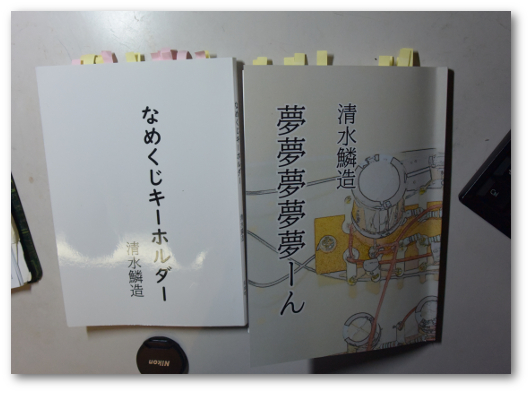 なめくじキーホルダー
清水鱗造
夢夢夢夢夢ーん
清水鱗造
Nikon